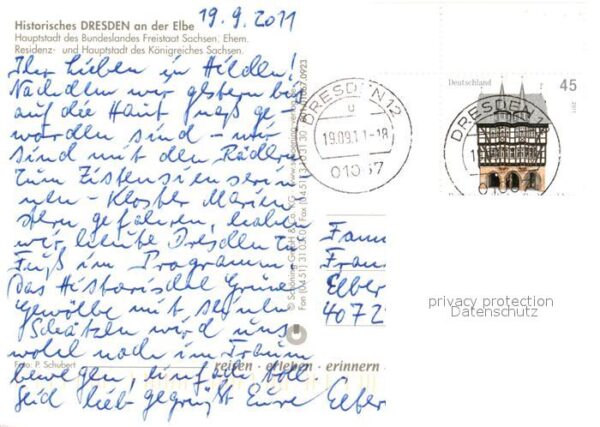 19.9.2011
Historisches DRESDEN an der Elbe
Hauptstadt des Bundeslandes Freistaat Sachsen. Ehem.
Residenz- und Hauptstadt des Königreiches Sachsen.
Ihr Lieben in Hilden!
Nachdem wir gestern bis
auf die Haut naß ge-
worden sind - wir
sind mit den Rädern
zum Zisterzienserin
nen-Kloster Marien
stern gefahren, haben
wir heute Dresden zu
Fuß im Programm
Das Historische Grüne
Gewölbe mit seinen
Schätzen wird uns
wohl noch im Traum
bewegen, einfach toll
Seid lieb gegrüßt Eure Elber
Foto: P. Schubert
© Schöning GmbH & Co. KG
reisen · erleben · erinnern
DRESDEN 12
u
19.09.11-18
01067
Deutschland
45
2011
DRESDEN 1
Fam
Fran
Elber
4072
privacy protection
Datenschutz